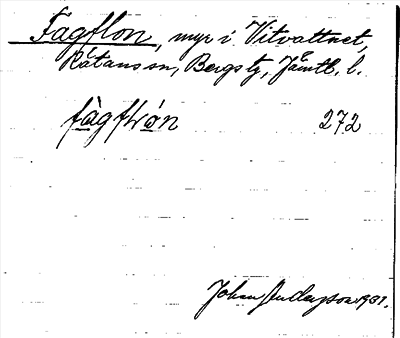 Fagflon, myr i Vitvattnet,
Rätans sn, Bergs tg, Jämtl. l.
fàgfɫón 272
Johan Anderzson 1931.